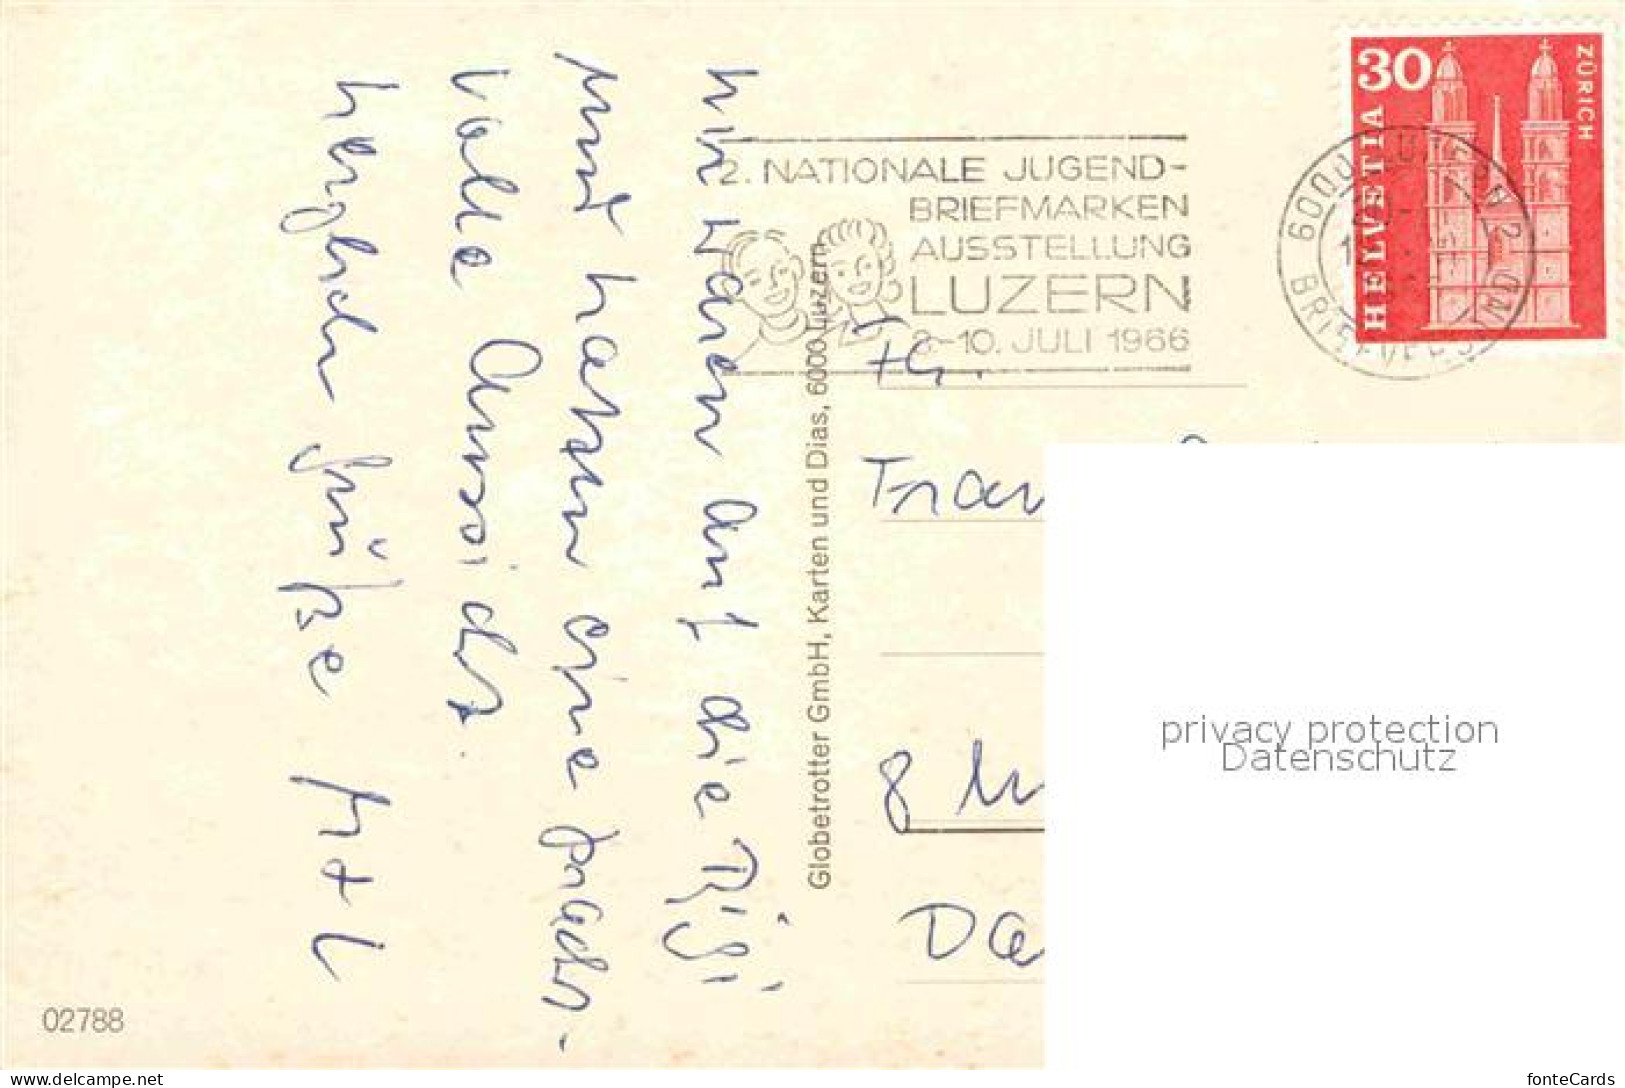 30
HELVETIA
ZÜRICH
2. NATIONALE JUGEND-
BRIEFMARKEN
AUSSTELLUNG
LUZERN
8-10. JULI 1966
6000 LUZERN 2
BRIEFVERSAND
Wir waren auf die Rigi
und hatten eine pracht-
volle Aussicht.
herzliche Grüße H+L
Globetrotter GmbH, Karten und Dias, 6000 Luzern
8
privacy protection
Datenschutz
02788
www.delcampe.net
fonteCards